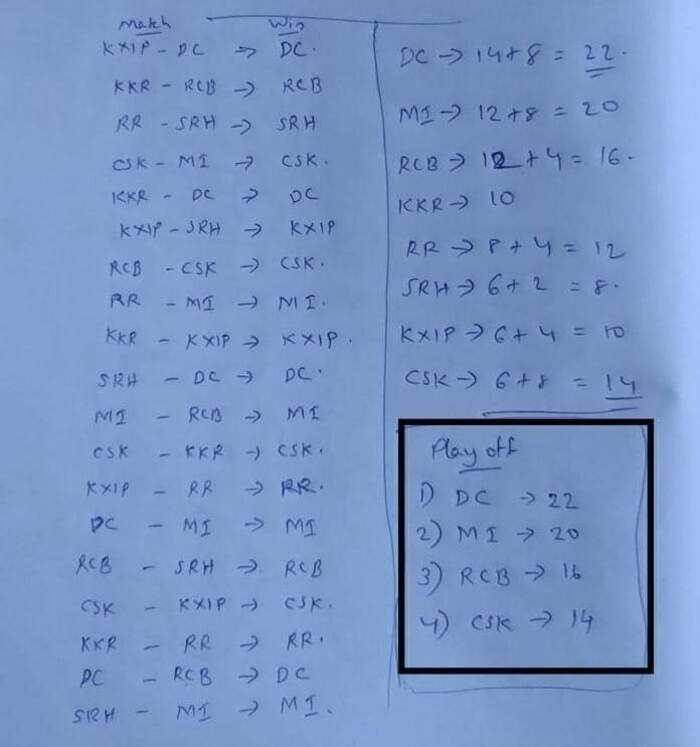 Match Win
KXIP - DC → DC.
KKR - RCB → RCB
RR - SRH → SRH
CSK - MI → CSK.
KKR - DC → DC
KXIP - SRH → KXIP
RCB - CSK → CSK.
RR - MI → MI.
KKR - KXIP → KXIP.
SRH - DC → DC.
MI - RCB → MI
CSK - KKR → CSK.
KXIP - RR → RR.
DC - MI → MI
RCB - SRH → RCB
CSK - KXIP → CSK.
KKR - RR → RR.
DC - RCB → DC
SRH - MI → MI.
DC → 14+8 = 22.
MI → 12+8 = 20
RCB → 12+4 = 16.
KKR → 10
RR → 8+4 = 12
SRH → 6+2 = 8.
KXIP → 6+4 = 10
CSK → 6+8 = 14
Play off
1) DC → 22
2) MI → 20
3) RCB → 16
4) CSK → 14